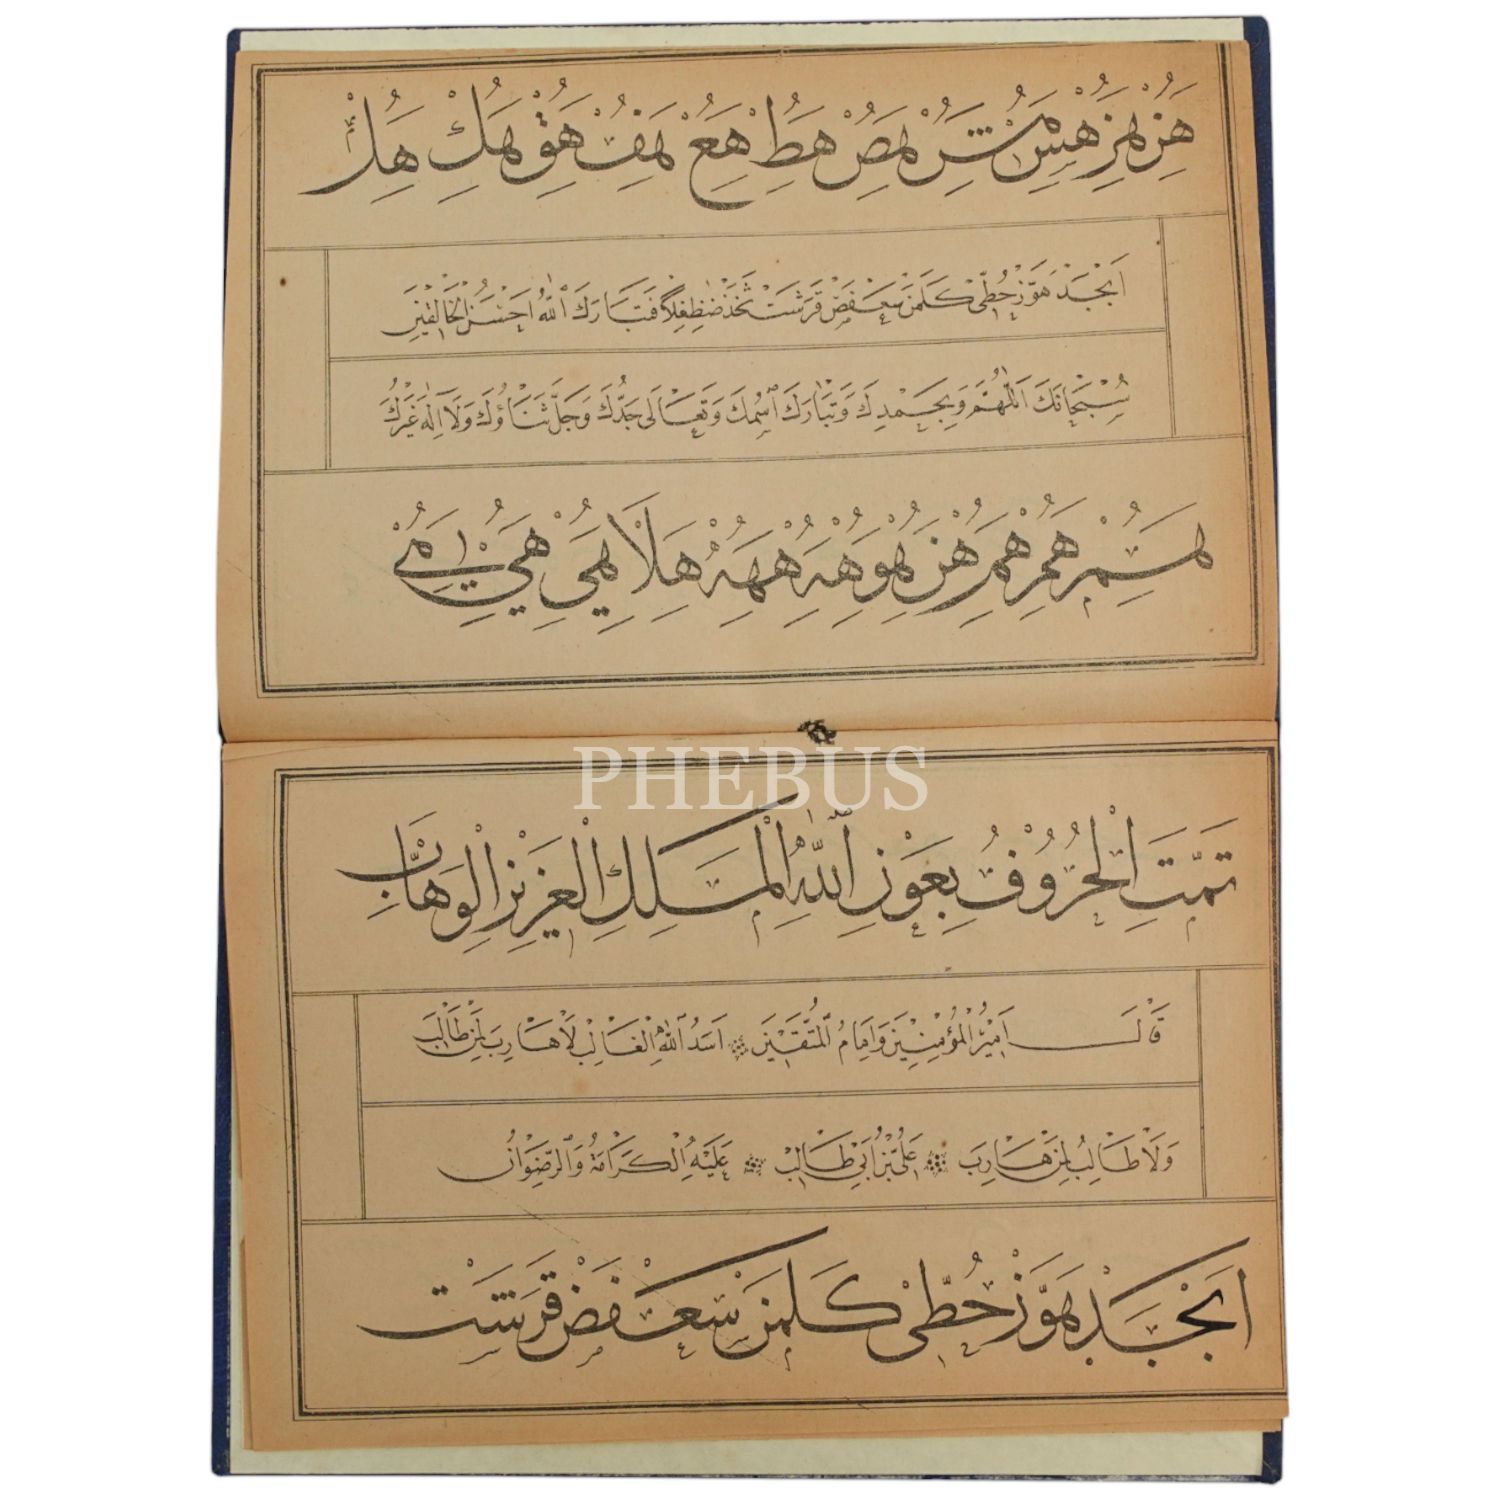 هُنْ هُزْ هُسْ مُشْ هُصْ هُطْ هُعْ هُفْ هُقْ هُكْ هُلْ
اَبْجَدْ هَوَّزْ حُطِّي كَلَمَنْ سَعْفَصْ قَرَشَتْ ثَخَذْ ضَظِغْلًا فَتَبَارَكَ اللّٰهُ اَحْسَنُ الْخَالِقِينَ
سُبْحَانَكَ اَللّٰهُمَّ وَبِحَمْدِكَ وَتَبَارَكَ اسْمُكَ وَتَعَالٰى جَدُّكَ وَجَلَّ ثَنَاؤُكَ وَلَا اِلٰهَ غَيْرُكَ
PHEBUS
تَمَّتِ الْحُرُوفُ بِعَوْنِ اللّٰهِ الْمَلِكِ الْعَزِيزِ الْوَهَّابِ
قَالَ اَمِيرُ الْمُؤْمِنِينَ وَاِمَامُ الْمُتَّقِينَ اَسَدُ اللّٰهِ الْغَالِبْ لَا هَارِبَ لِمَنْ طَالَبَ
وَلَا طَالِبَ لِمَنْ هَارِبَ عَلِيُّ بْنُ اَبِي طَالِبْ عَلَيْهِ الْكَرَامَةُ وَالرِّضْوَانُ
اَبْجَدْ هَوَّزْ حُطِّي كَلَمَنْ سَعْفَصْ قَرَشَتْ